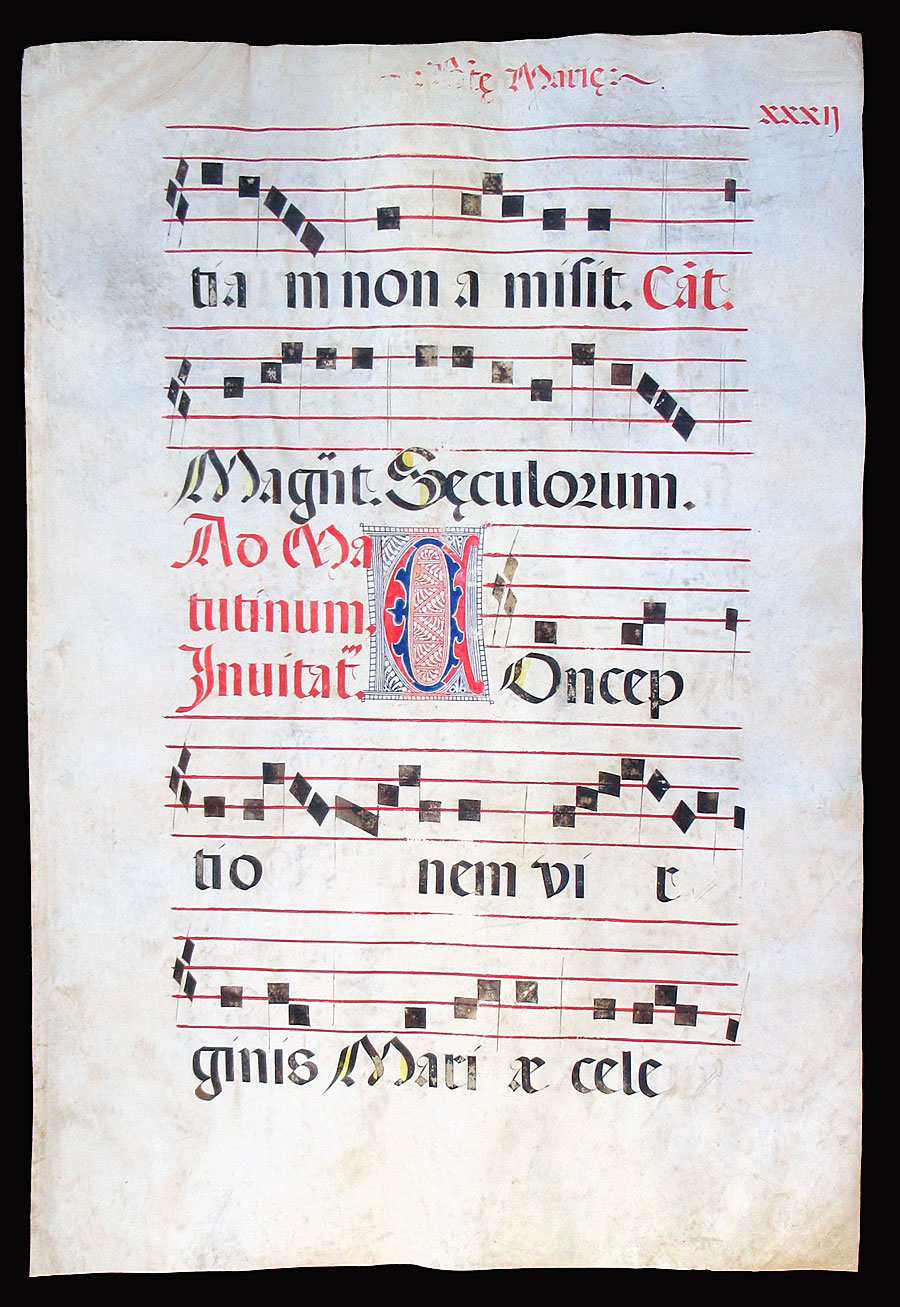 Marię
xxxij
tia m non a misit. Cât.
Magn̄t. Sęculorum.
Ad Ma
tutinum.
Inuitat.
COncep
tio nem vi r
ginis Mari æ cele